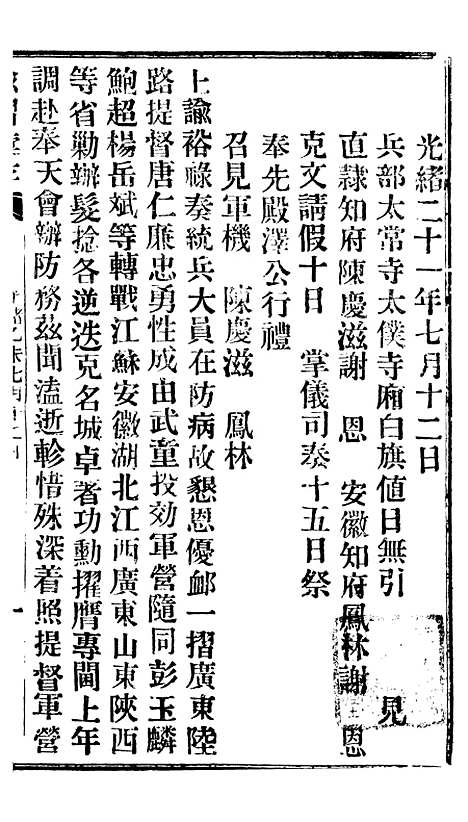 光緒二十一年七月十二日
兵部太常寺太僕寺廂白旗値日無引 見
直隷知府陳慶滋謝 恩 安徽知府鳳林謝 恩
克文請假十日 掌儀司奏十五日祭
奉先殿澤公行禮
召見軍機 陳慶滋 鳳林
上諭裕祿奏統兵大員在防病故懇恩優卹一摺廣東陸
路提督唐仁廉忠勇性成由武童投効軍營隨同彭玉麟
鮑超楊岳斌等轉戰江蘇安徽湖北江西廣東山東陝西
等省勦辦髮捻各逆迭克名城卓著功勳擢膺專閫上年
調赴奉天會辦防務茲聞溘逝軫惜殊深着照提督軍營